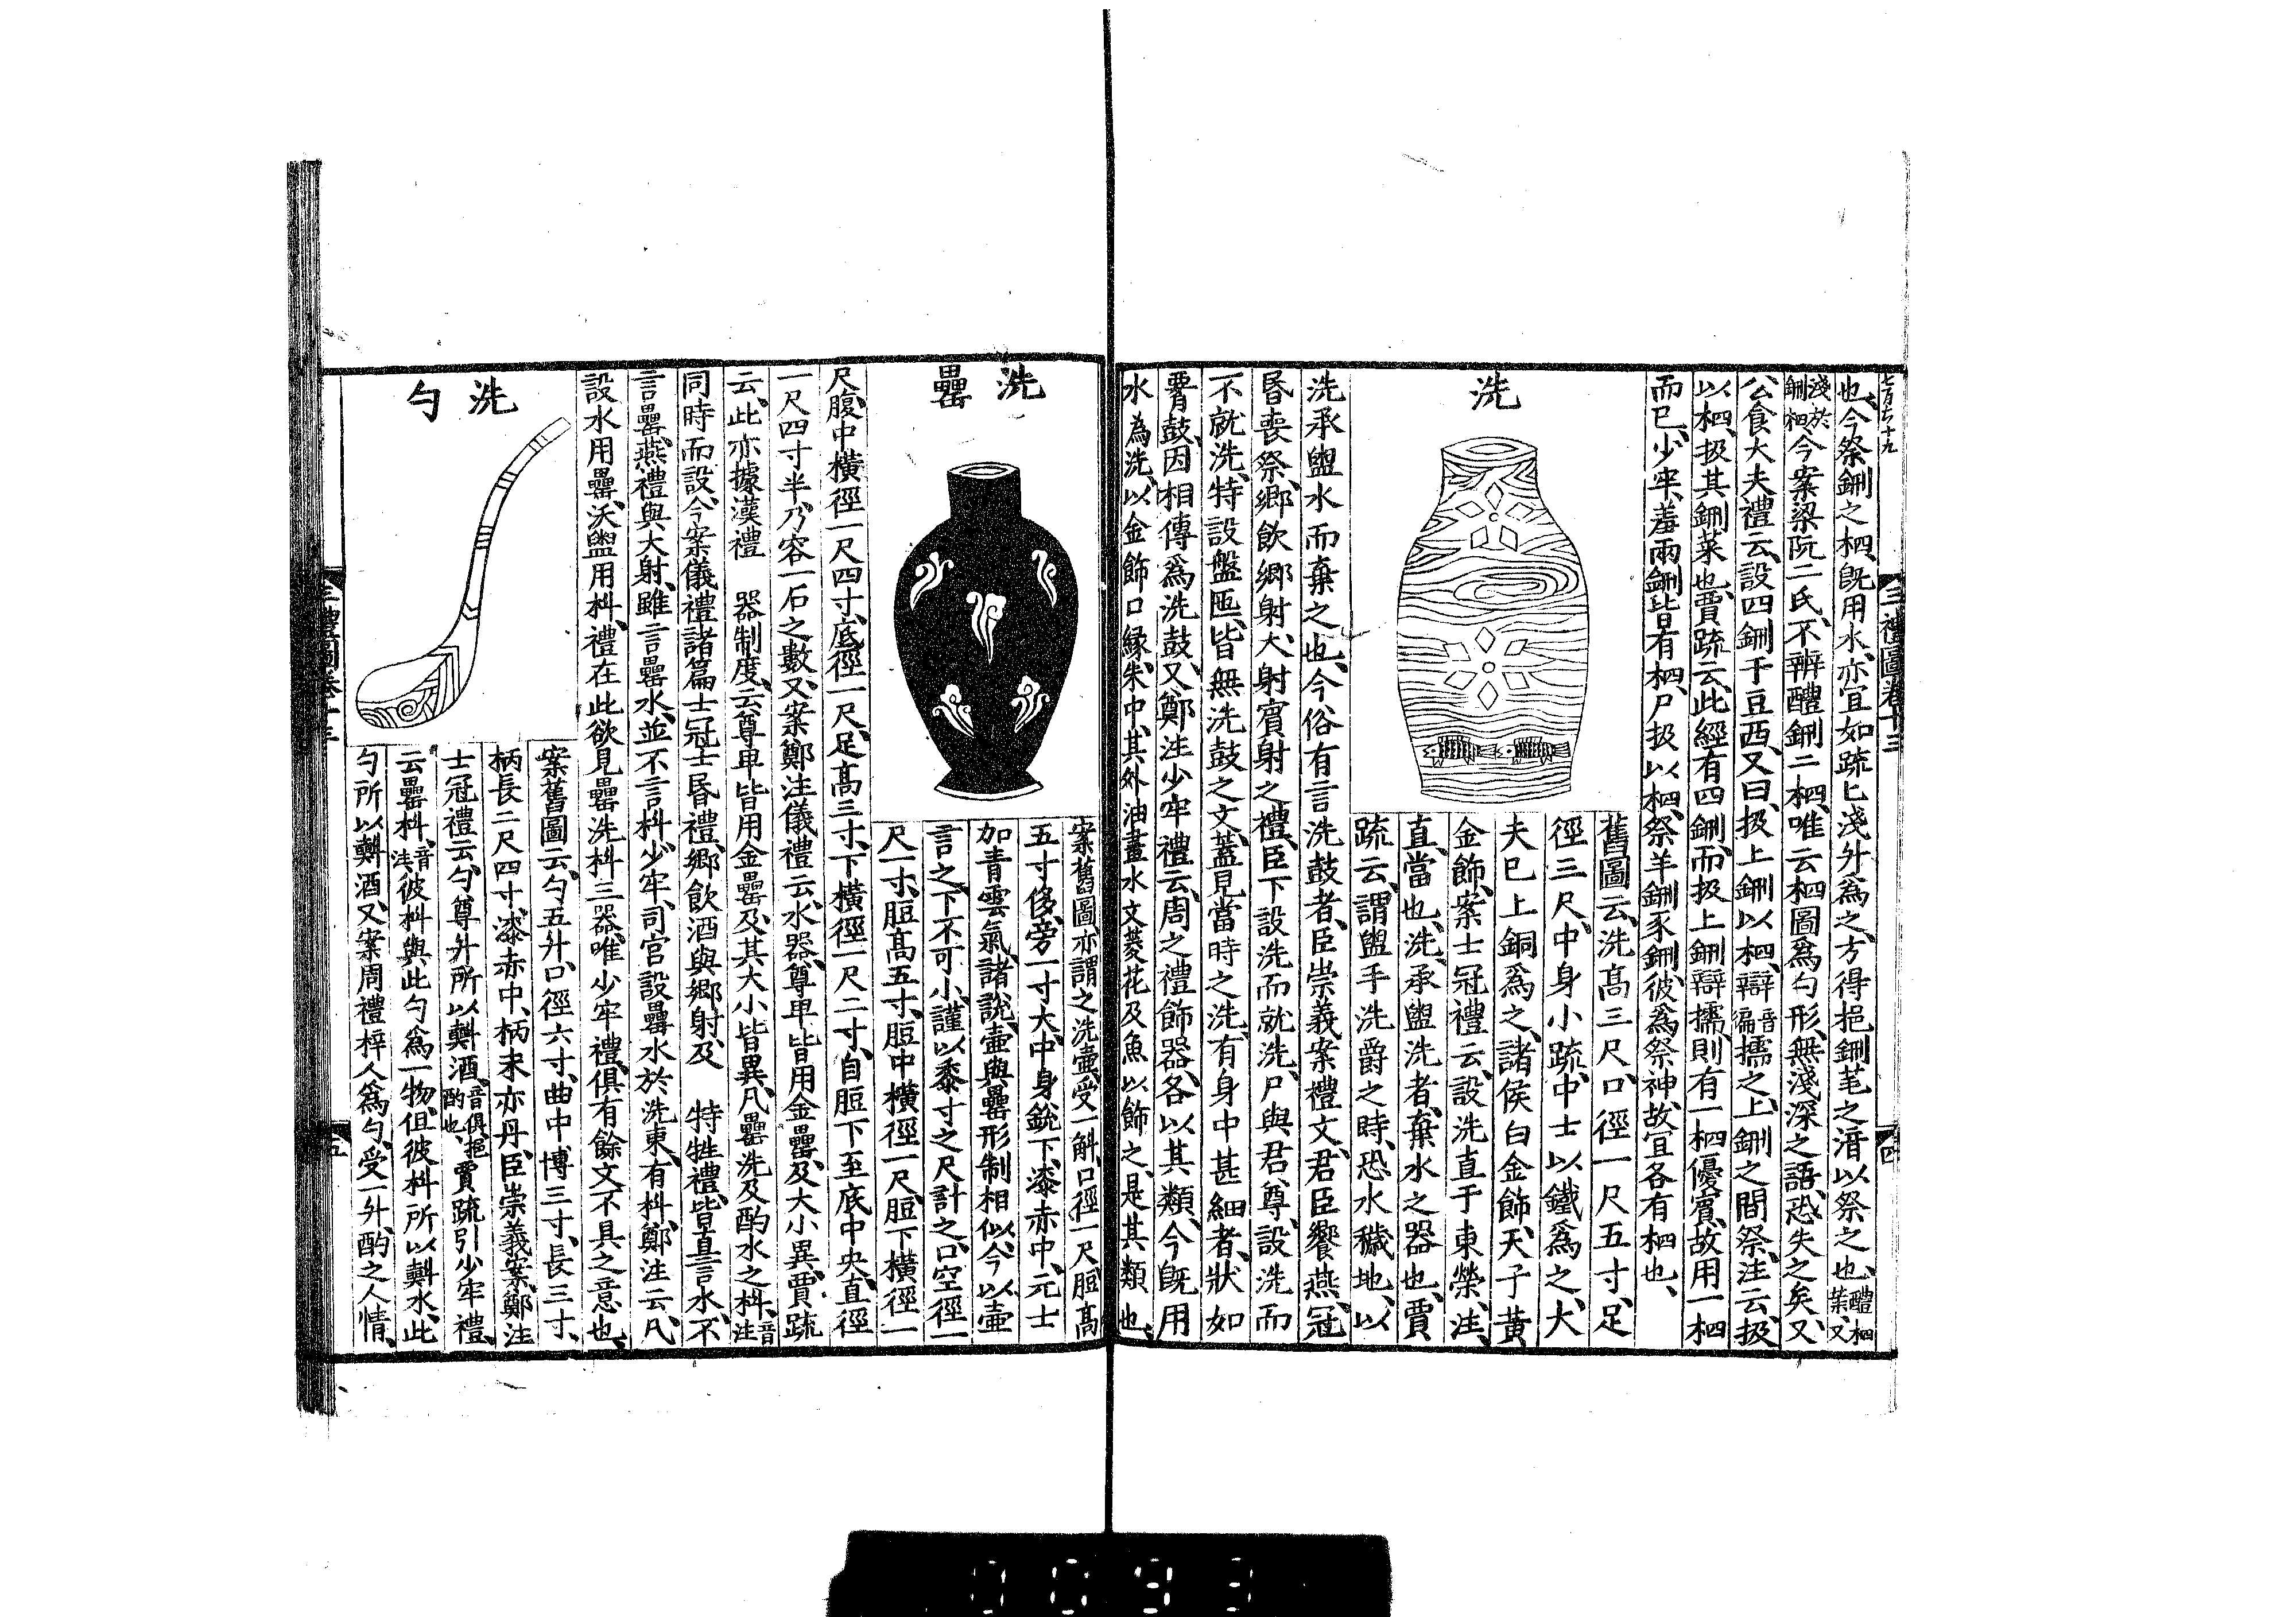 七百七十九
三禮圖卷十三
十四
也、今祭鉶之柶、旣用水、亦宜如疏匕淺升爲之、方得挹鉶芼之湆以祭之也、醴柶葉、又
淺於鉶柶、今案梁阮二氏、不辨醴鉶二柶、唯云柶圖爲勺形、無淺深之語、恐失之矣、又、
公食大夫禮云、設四鉶于豆西、又曰、扱上鉶以柶、辯音徧擩之、上鉶之間祭、注云、扱
以柶、扱其鉶菜也、賈疏云、此經有四鉶、而扱上鉶、辯擩、則有一柶、優賓、故用一柶
而已、少牢、羞兩鉶皆有柶、尸扱以柶、祭羊鉶豕鉶、彼爲祭神、故宜各有柶也、
洗
舊圖云、洗高三尺、口徑一尺五寸、足
徑三尺、中身小疏、中士以鐵爲之、大
夫已上銅爲之、諸侯白金飾、天子黃
金飾、案士冠禮云、設洗直于東榮、注、
直、當也、洗、承盥洗者、棄水之器也、賈
疏云、謂盥手洗爵之時、恐水穢地、以
洗承盥水而棄之也、今俗有言洗鼓者、臣崇義案禮文、君臣饗燕、冠
昏喪祭、鄉飲鄉射、大射賓射之禮、臣下設洗而就洗、尸與君、尊、設洗而
不就洗、特設盤匜、皆無洗鼓之文、蓋見當時之洗、有身中甚細者、狀如
腰鼓、因相傳爲洗鼓、又鄭注少牢禮云、周之禮飾器、各以其類、今旣用
水為洗、以金飾口緣、朱中、其外油畫水文菱花及魚以飾之、是其類也、
洗罍
案舊圖、亦謂之洗壷、受一斛、口徑一尺、脰高
五寸、侈旁一寸、大、中身銳下、漆赤中、元士
加青雲氣、諸說、壷與罍形制相似、今以壷
言之、下不可小、謹以黍寸之尺計之、口空徑一
尺一寸、脰高五寸、脰中橫徑一尺、脰下橫徑一
尺、腹中橫徑一尺四寸、底徑一尺、足高三寸、下橫徑一尺二寸、自脰下至底中央、直徑
一尺四寸半、乃容一石之數、又案鄭注儀禮云、水器、尊卑皆用金罍、及大小異、賈疏
云、此亦據漢禮器制度、云尊卑皆用金罍、及其大小皆異、凡罍洗及酌水之枓、音注
同時而設、今案儀禮諸篇、士冠士昏禮、鄉飲酒與鄉射、及特牲禮、皆直言水、不
言罍、燕禮與大射、雖言罍水、並不言枓、少牢、司宮設罍水於洗東、有枓、鄭注云、凡
設水用罍、沃盥用枓、禮在此欲見罍洗枓三器、唯少牢禮、俱有餘文不具之意也、
洗勺
案舊圖云、勺五升、口徑六寸、曲中博三寸、長三寸、
柄長二尺四寸、漆赤中、柄末亦丹、臣崇義案、鄭注
士冠禮云、勺、尊升所以㪺酒、音俱挹酌也、賈疏引少牢禮
云、罍枓、音注彼枓與此勺爲一物、但彼枓所以㪺水、此
勺所以㪺酒、又案周禮梓人爲勺、受一升、酌之人情、
三禮圖卷十三
十五
0093